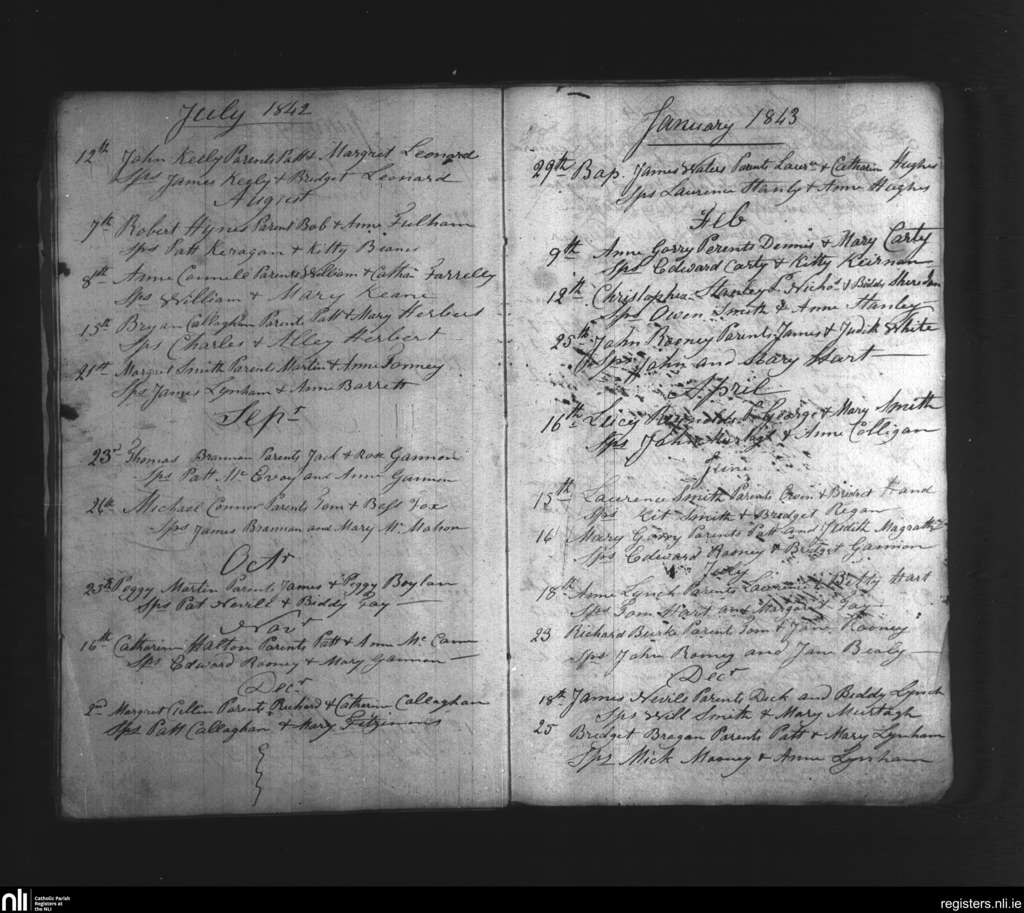 July 1842
12th John Keely Parents Patt & Margret Leonard
Sps James Kegly & Bridget Leonard
August
7th Robert Hynes Parent Bob & Anne Fulham
Sps Patt Keragan & Kitty Beanes
8th Anne Connell Parents William & Farrelley
Sps William & Mary Keane
15th Bryan Callaghan Parents Patt & Mary Herbert
Sps Charles & Alley Herbert
21st Margret Smith Parents Martin & Anne
Sps James Lynham & Anne Barrett
Sepr
23d Thomas Brannan Parents Jack & Rose Gannon
Sps Patt Mc Evoy and Anne Gannon
26th Michael Connor Parents Tom & Bess Fox
Sps James Brannan and Mary Mc Mahon
Octr
25th Peggy Martin Parents James & Peggy Boylan
Sps Pat Nevill & Biddy Fay
Novr
16th Catharine Halton Parents Patt & Anne Mc Cann
Sps Edward Rooney & Mary Gannon
Decr
2nd Margret Parents Richard & Catherin Callaghan
Sps Patt Callaghan & Mary Fitzimons
January 1843
29th Bap. James Waters Parents Laure & Catharin Hughes
Sps Laurence Hanly & Anne Hughes
Feb
9th Anne Gorry Perents Dennis & Mary Carty
Sps Edward Carty & Kitty Kiernan
12th Christopher Stanley P. Nichos & Biddy Sheredan
Sps Owen Smith & Anne Stanley
25th John Rooney Parents James & Judith White
Sps John and Mary Hart
April
16th Lucy Reynolds P. George & Mary Smith
Sps John & Anne Colligan
June
15th Laurence Smith Parents Owen & Bridget Hand
Sps Kit Smith & Bredget Regan
16 Mary Gorry Parents Patt and Judith Magrath
Sps Edward Rooney & Bridget Gannon
July
18th Anne Lynch Parents Betty Hart
Sps Tom Hart and Margaret Fay
23 Richard Burke Parent Tom & Jane Rooney
Sps John Romey and Jan Bealy
Decr
18th James Nevils Parents Dick and Biddy Lynch
Sps Will Smith & Mary Murtagh
25 Bredget Bragan Parents Patt & Mary Lynham
Sps Mick Mooney & Anne Lynham
nli Catholic Parish
Registers at
the NLI
registers.nli.ie